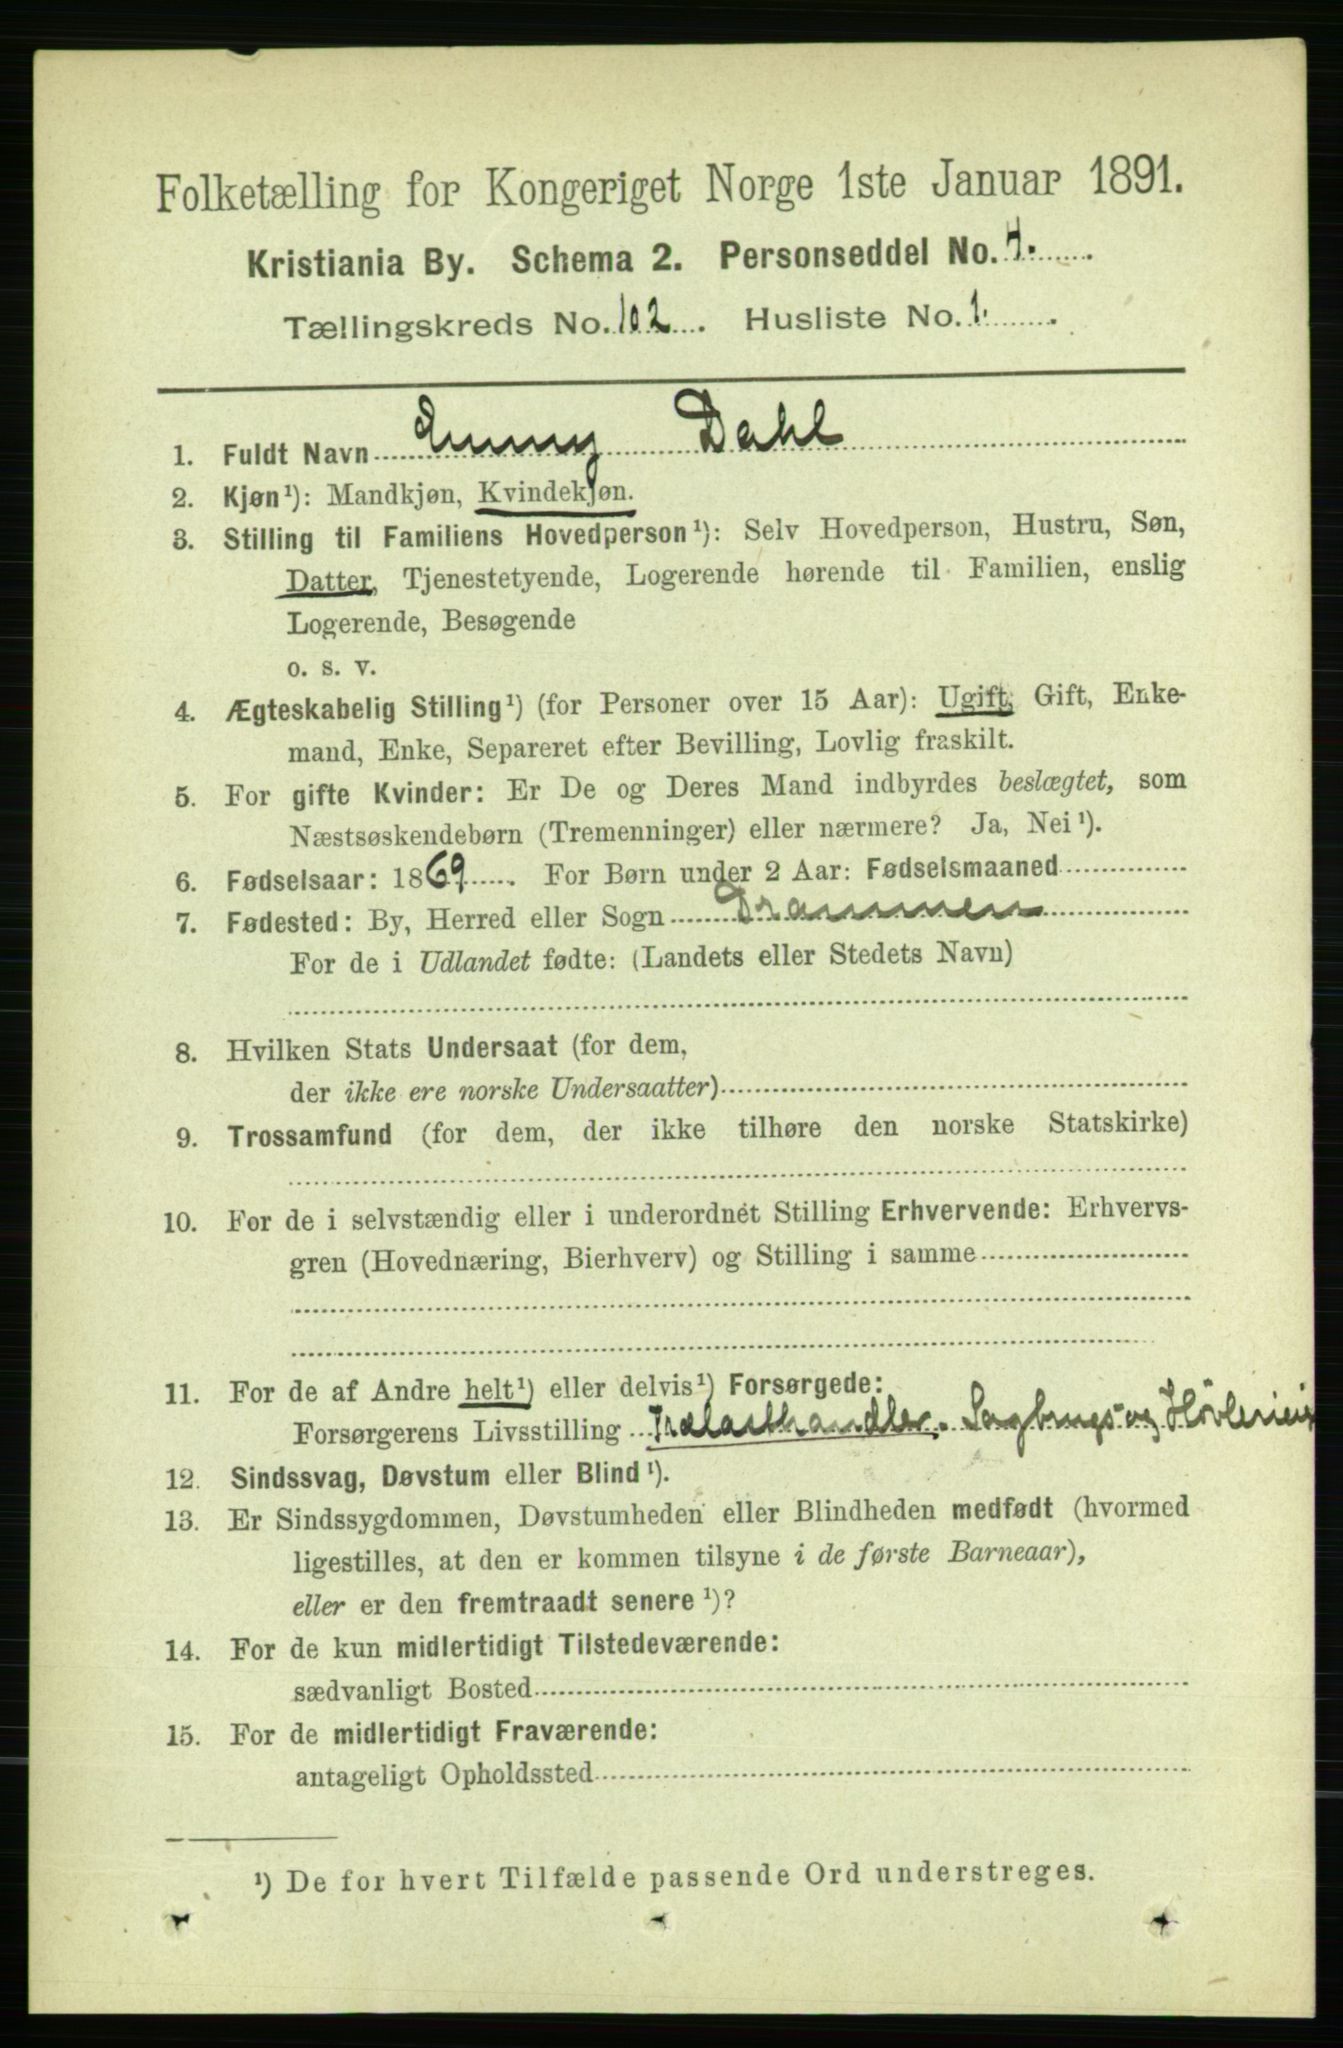 Folketælling for Kongeriget Norge 1ste Januar 1891.
Kristiania By. Schema 2. Personseddel No. 4.
Tællingskreds No. 102. Husliste No. 1.
1. Fuldt Navn Emmy Dahl
2. Kjøn¹): Mandkjøn, Kvindekjøn.
3. Stilling til Familiens Hovedperson¹): Selv Hovedperson, Hustru, Søn,
Datter, Tjenestetyende, Logerende hørende til Familien, enslig
Logerende, Besøgende
o. s. v.
4. Ægteskabelig Stilling¹) (for Personer over 15 Aar): Ugift, Gift, Enke-
mand, Enke, Separeret efter Bevilling, Lovlig fraskilt.
5. For gifte Kvinder: Er De og Deres Mand indbyrdes beslægtet, som
Næstsøskendebørn (Tremenninger) eller nærmere? Ja, Nei¹).
6. Fødselsaar: 1869. For Børn under 2 Aar: Fødselsmaaned
7. Fødested: By, Herred eller Sogn Drammen
For de i Udlandet fødte: (Landets eller Stedets Navn)
8. Hvilken Stats Undersaat (for dem,
der ikke ere norske Undersaatter)
9. Trossamfund (for dem, der ikke tilhøre den norske Statskirke)
10. For de i selvstændig eller i underordnet Stilling Erhvervende: Erhvervs-
gren (Hovednæring, Bierhverv) og Stilling i samme
11. For de af Andre helt¹) eller delvis¹) Forsørgede:
Forsørgerens Livsstilling Trælasthandler. Sagbrugs- og Høvlerieier
12. Sindssvag, Døvstum eller Blind¹).
13. Er Sindssygdommen, Døvstumheden eller Blindheden medfødt (hvormed
ligestilles, at den er kommen tilsyne i de første Barneaar),
eller er den fremtraadt senere¹)?
14. For de kun midlertidigt Tilstedeværende:
sædvanligt Bosted
15. For de midlertidigt Fraværende:
antageligt Opholdssted
¹) De for hvert Tilfælde passende Ord understreges.